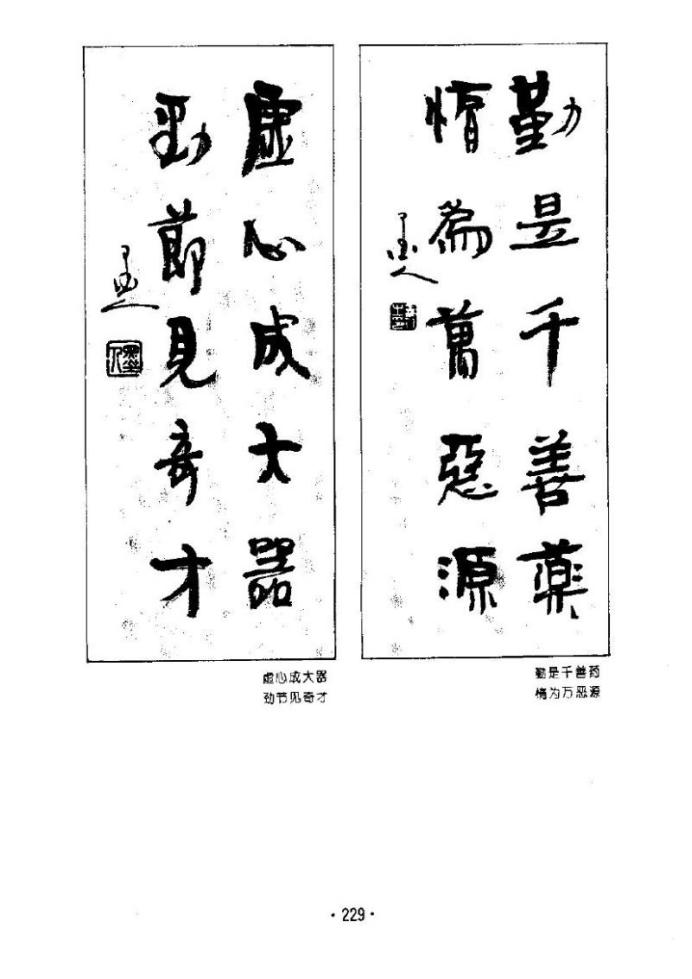 勤是千善藥
惰為萬惡源
虛心成大器
勁節見奇才
虚心成大器
劲节见奇才
勤是千善药
惰为万恶源
·229·